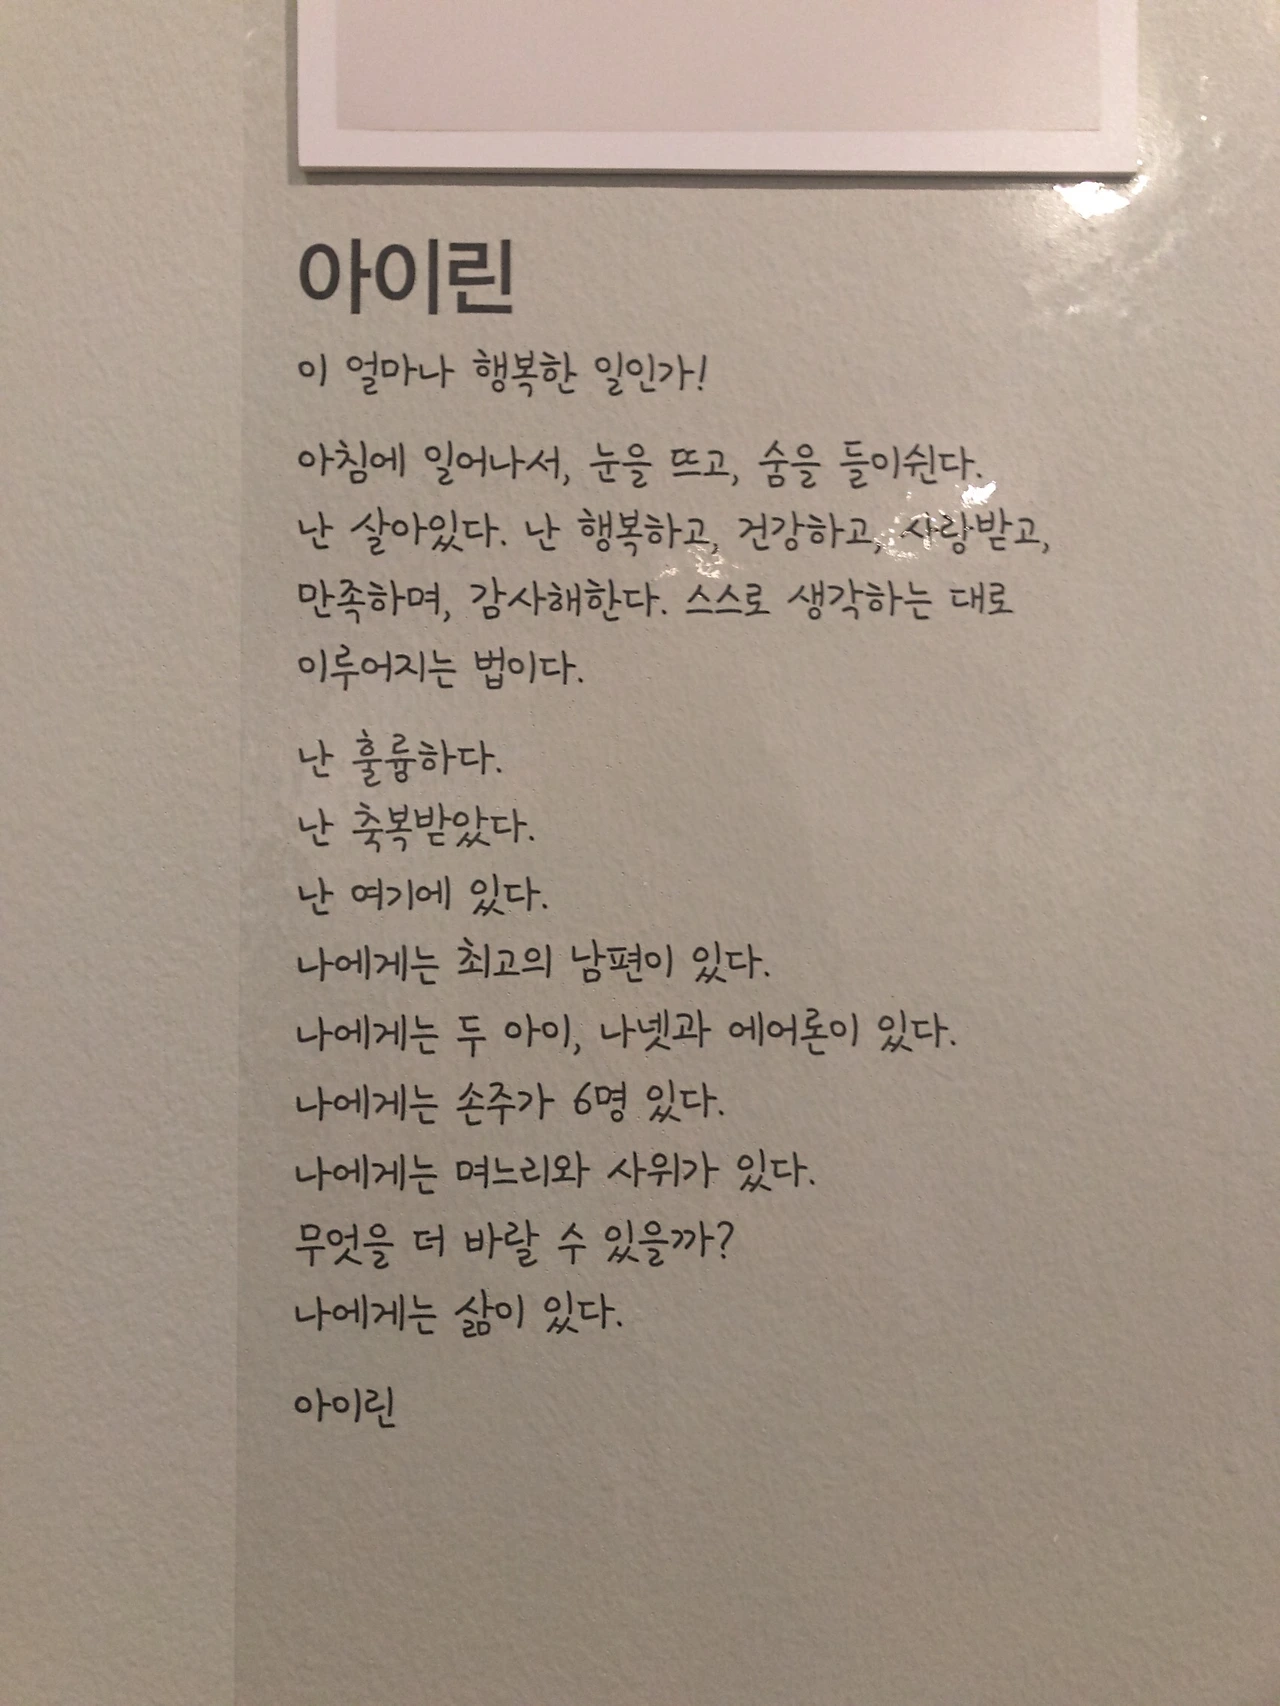 아이린
이 얼마나 행복한 일인가!
아침에 일어나서, 눈을 뜨고, 숨을 들이쉰다.
난 살아있다. 난 행복하고, 건강하고, 사랑받고,
만족하며, 감사해한다. 스스로 생각하는 대로
이루어지는 법이다.
난 훌륭하다.
난 축복받았다.
난 여기에 있다.
나에게는 최고의 남편이 있다.
나에게는 두 아이, 나넷과 에어론이 있다.
나에게는 손주가 6명 있다.
나에게는 며느리와 사위가 있다.
무엇을 더 바랄 수 있을까?
나에게는 삶이 있다.
아이린